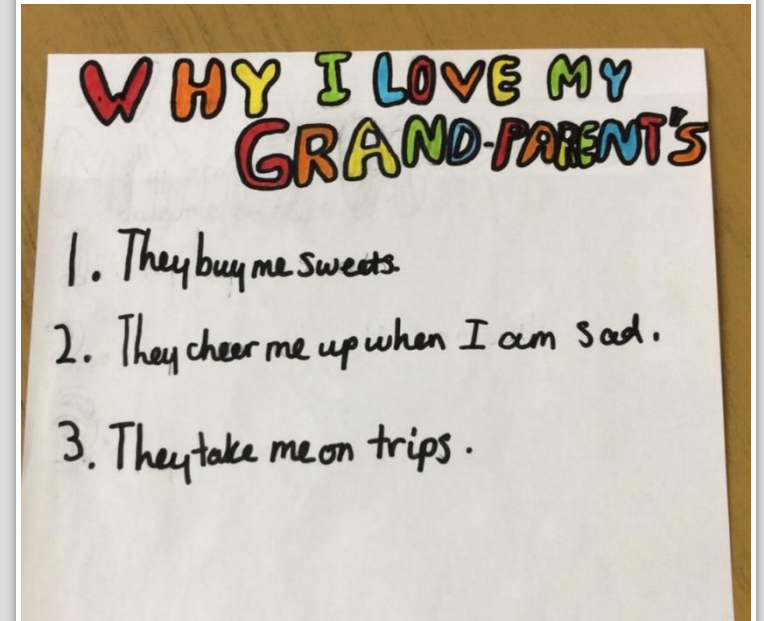 WHY I LOVE MY
GRAND-PARENT'S
1. They buy me sweets.
2. They cheer me up when I am sad.
3. They take me on trips.